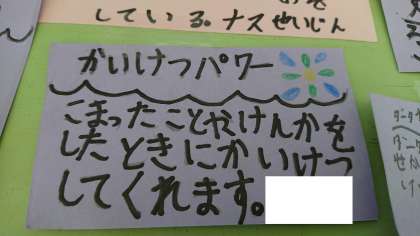 している。ナスせいじん
かいけつパワー
こまったことやけんかを
したときにかいけつ
してくれます。